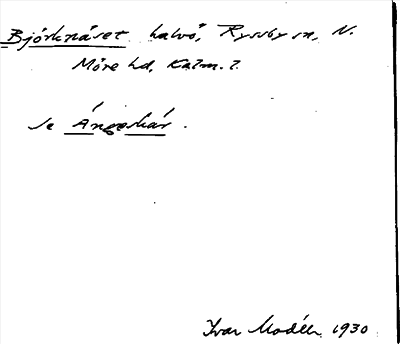 Björknäset halvö, Ryssby sn, N.
Möre hd, Kalm. l.
Se Ängeskär.
Ivar Modéer 1930